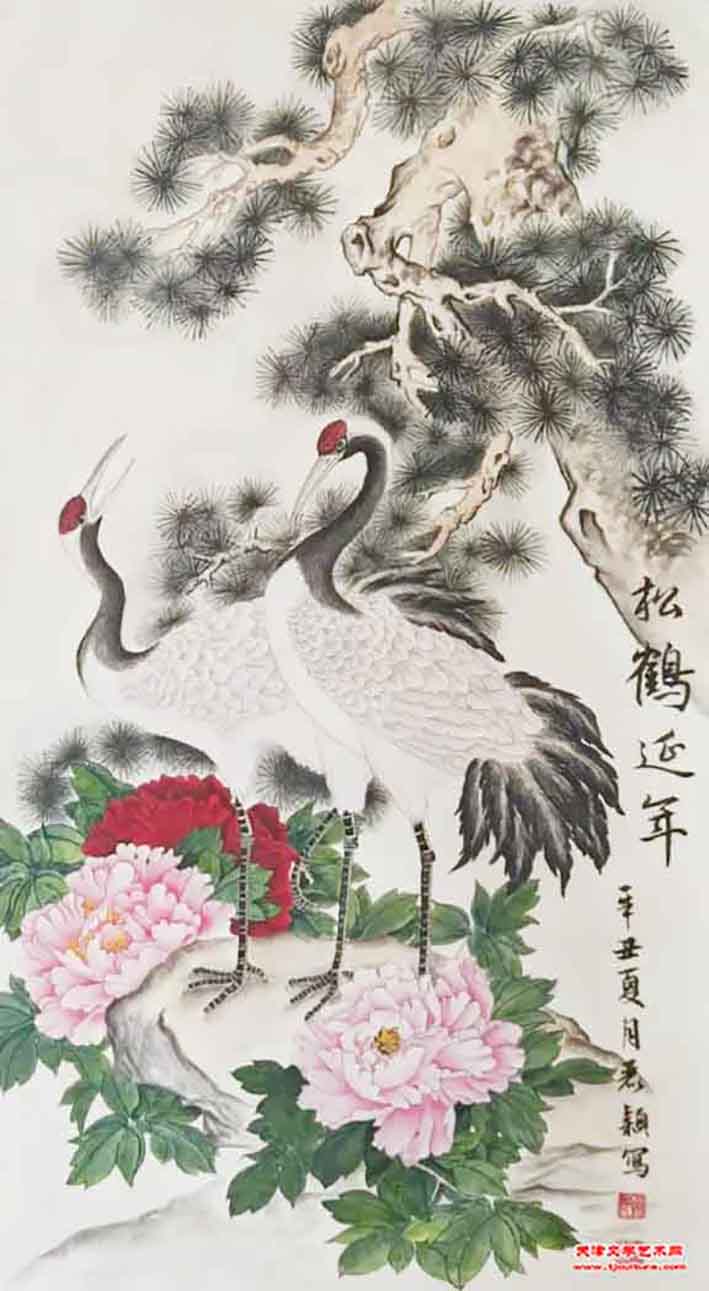 松鹤延年
辛丑夏月惠颖写
天津文学艺术网
www.tjculture.com